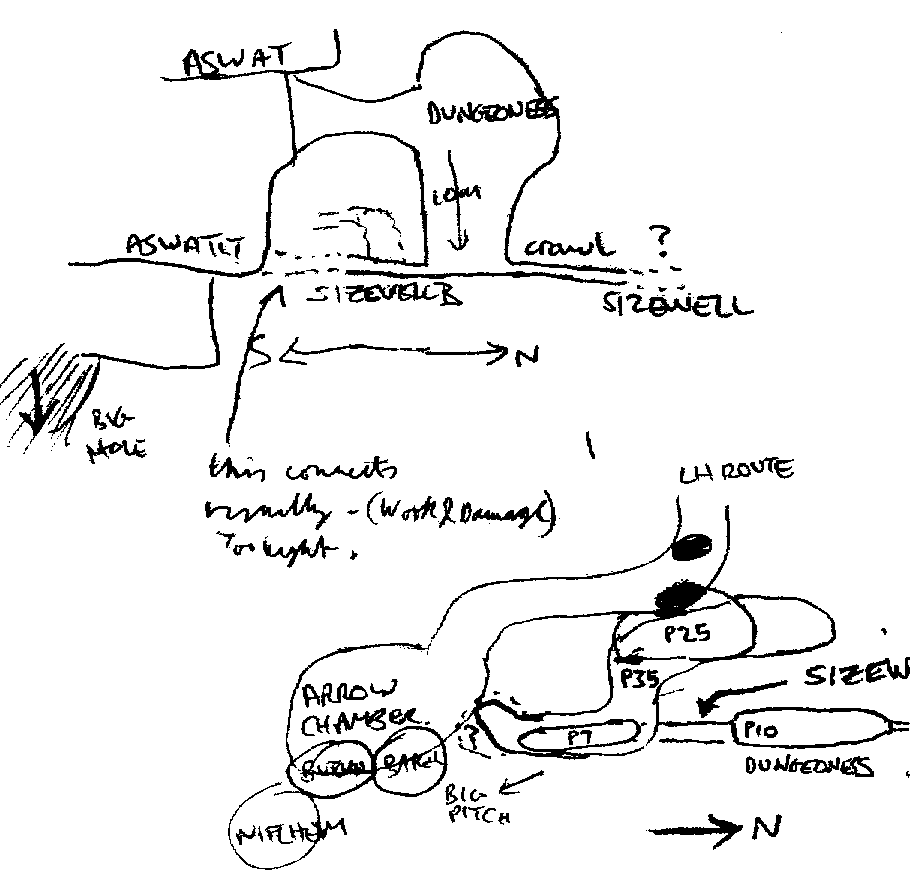 ASWAT
DUNGEONESS
10m
ASWATIT
crawl ?
SIZEWELL B
SIZEWELL
S N
BIG
HOLE
this connects
visually - (Work & Damage)
Too tight.
LH ROUTE
P25
P35
ARROW
CHAMBER
SIZEW
P7
P10
?
DUNGEONESS
BIG
PITCH
NIFLHEIM
N